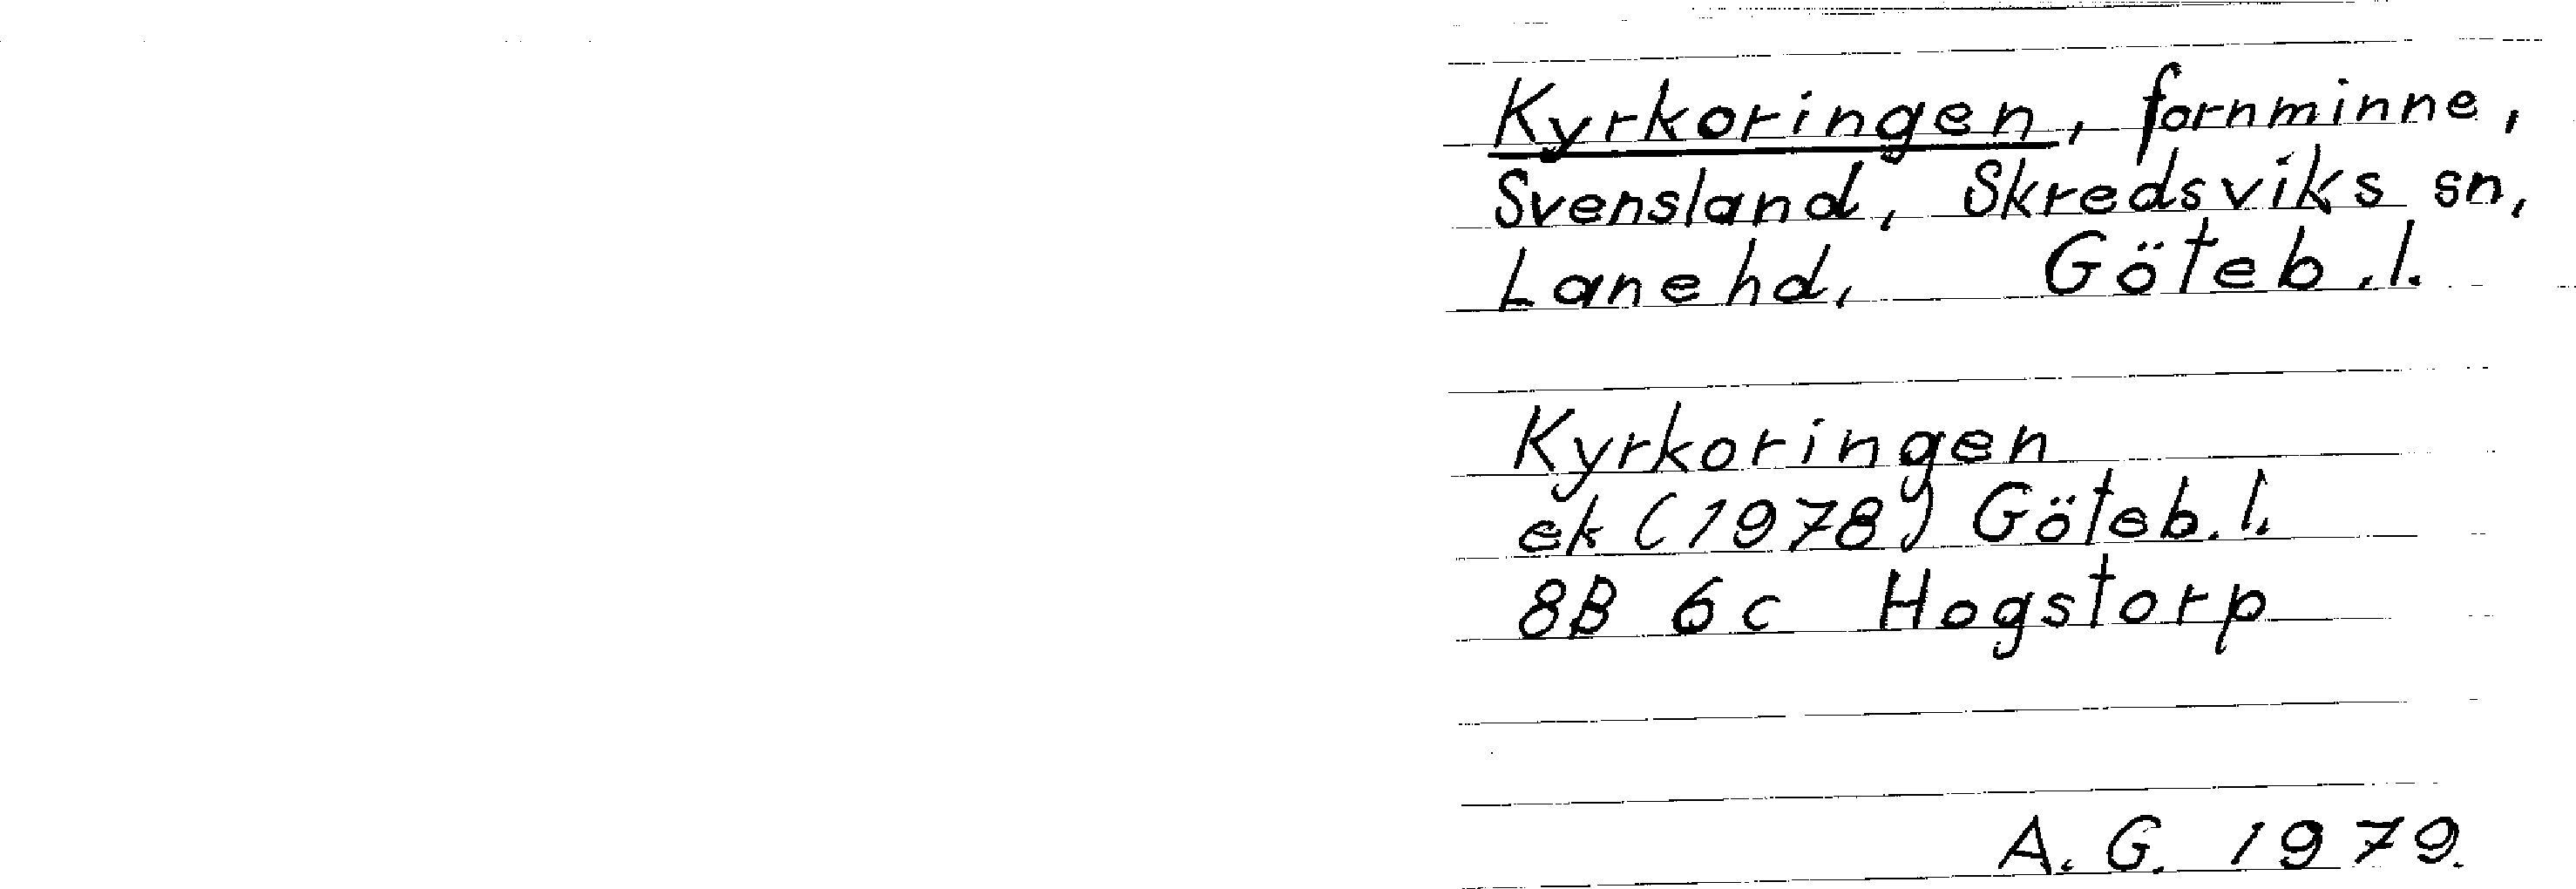 Kyrkoringen, fornminne,
Svensland, Skredsviks sn,
Lane hd, Göteb.l.
Kyrkoringen
ek (1978) Göteb.l.
8B 6c Hogstorp
A.G. 1979.